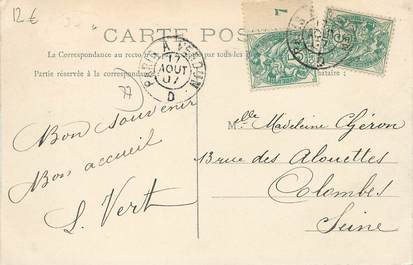 12€
CARTE POS
La Correspondance au recto
Partie réservée à la correspondance
PARIS A VERDUN
17
AOUT
07
D
77
Bon souvenir
Bon accueil
L. Vert
Mlle Madeleine Chéron
13 rue des Alouettes
Colombes
Seine